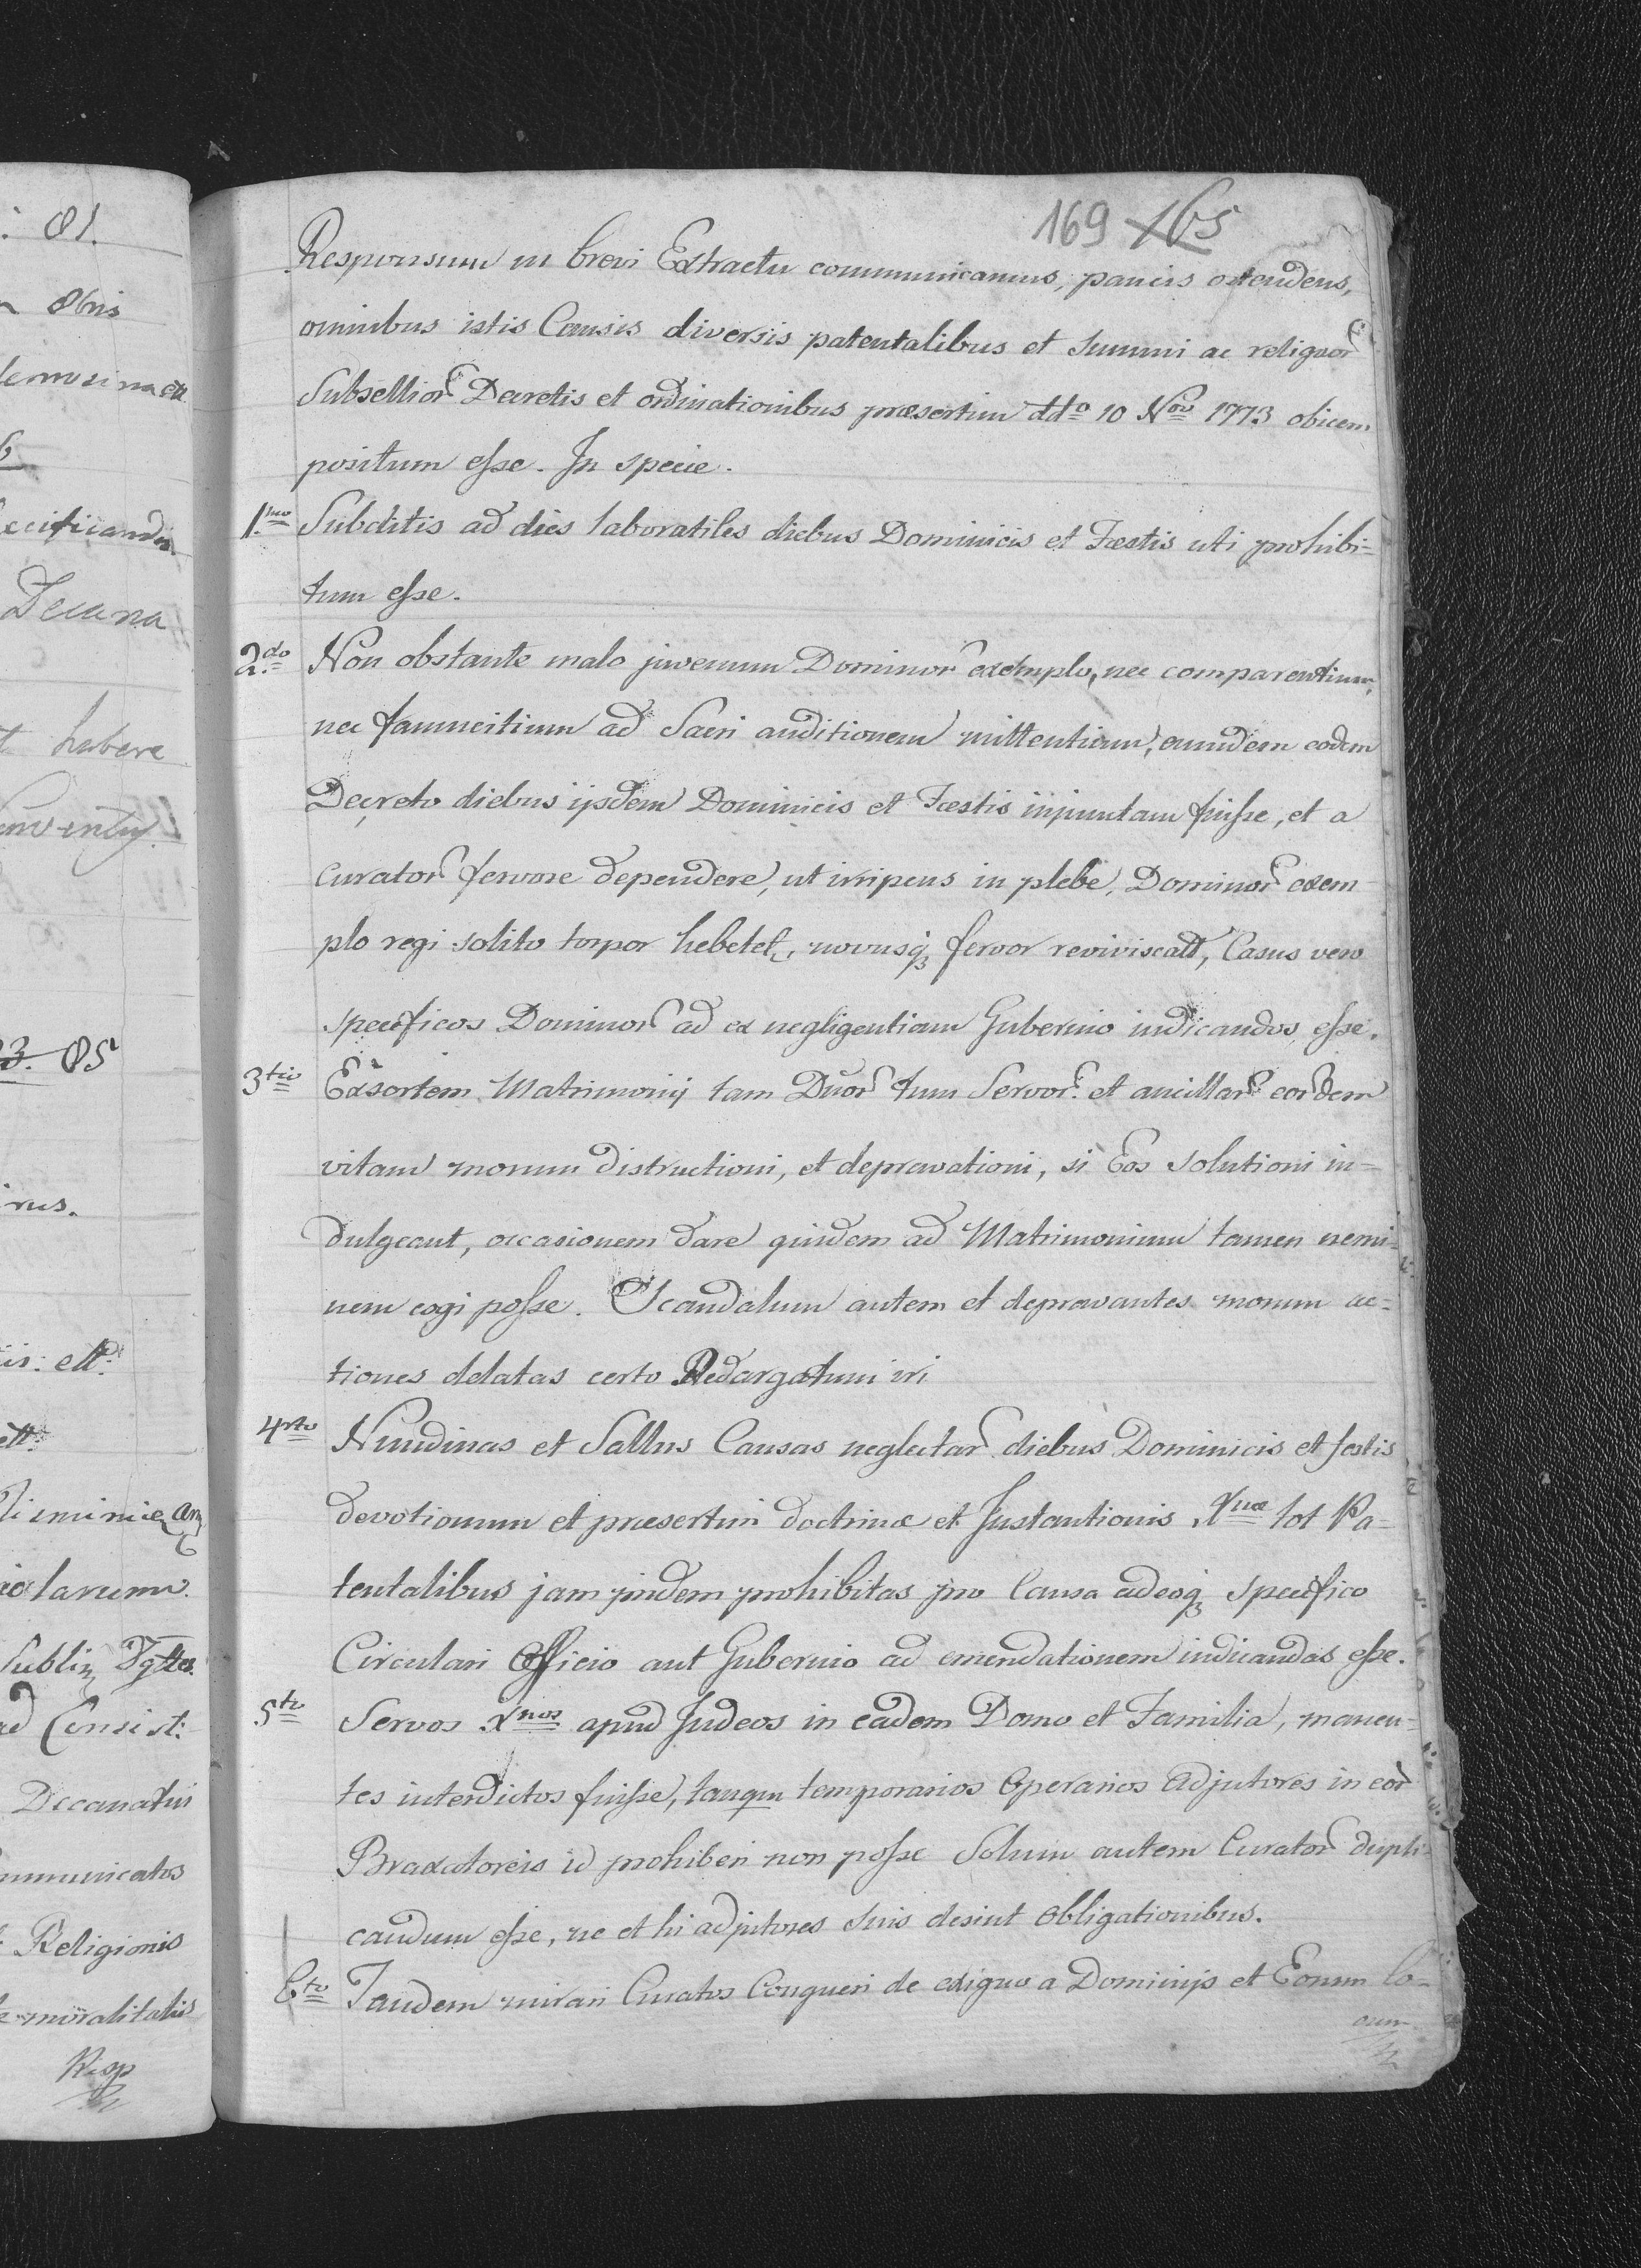 : 81.
8bris
lemosina
ecificandis
Decana
t habere
Conventy.
85
rus.
is: ett:
ett:
iolarum
Sublim
ad Consist:
Decanatui
mmunicatos
Religionis
moralitatis
Resp
169 165
Responsum in brevi Extractu communicamus, paucis ostendens,
omnibus istis Causis diversis patentalibus et Summi ac reliquor
Subsellior Decretis et ordinationibus præsertim ddo 10 Nov 1773 obicem
positum esse. In specie.
1mo Subditis ad dies laboratiles diebus Dominicis et Festis uti prohibi=
tum esse.
2do Non obstante malo juvenum Dominor exemplo, nec comparentium,
nec famulitium ad Sacri auditionem mittentium, eundem eodem
Decreto diebus iisdem Dominicis et Festis injunctam fuisse, et a
Curator fervore dependere, ut irripens in plebe, Dominor exem
plo regi solito torpor hebetet, novusq fervor reviviscat, Casus vero
specificos Dominor ad ex negligentiam Gubernio indicandos esse.
3tio Exsortem Matrimonij tam Dnor tum Servor. et ancillar eordem
vitam morum distructioni, et depravationi, si Eos solutioni in=
dulgeant, occasionem dare quidem ad Matrimonium tamen nemi=
nem cogi posse. Scandalum autem et depravantes morum ac=
tiones delatas certo Redargutum iri
4rto Nundinas et Saltus Causas neglectar diebus Dominicis et festis
devotionum et præsertim doctrinæ et Instantionis Xnæ tot Pa=
tentalibus jam pridem prohibitas pro Causa adeoq specifico
Circulari Officio aut Gubernio ad emendationem indicandas esse.
5to Servos Xnos apud Judeos in eadem Domo et Familia, manen=
tes interdictos fuisse, tanqm temporarios Operarios Adjutores in eor
Braxatoreis id prohiberi non posse Solum autem Curator dupli=
candum esse, ne et hi adjutores suis desint Obligationibus.
6to Tandem mirari Curatos Conqueri de exiguo a Dominijs et Eorum lo=
cum